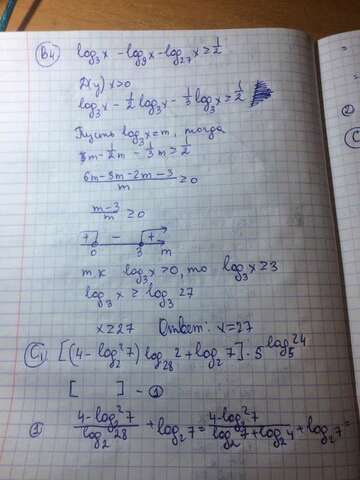 B4 log₃x - log₉x - log₂₇x ≥ 1/2
x > 0
log₃x - 1/2 log₃x - 1/3 log₃x ≥ 1/2
Пусть log₃x = m, тогда
m - 1/2 m - 1/3 m ≥ 1/2
(6m - 3m - 2m - 3)/m ≥ 0
(m-3)/m ≥ 0
+ - +
0 3 m
т.к log₃x > 0, то log₃x ≥ 3
log₃x ≥ log₃27
x ≥ 27 Ответ: x = 27
C1 [(4 - log₂²7) log₂₈2 + log₂7] · 5^log₅24
[ ] - 1
1 (4 - log₂²7)/log₂28 + log₂7 = (4 - log₂²7)/(log₂7 + log₂4) + log₂7 =